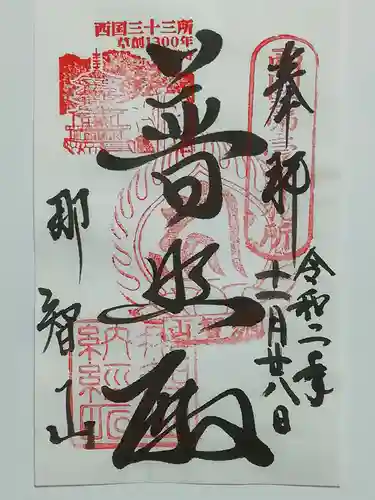 西国三十三所
草創1300年
奉拝
令和二年
十一月廿八日
普照殿
那智山